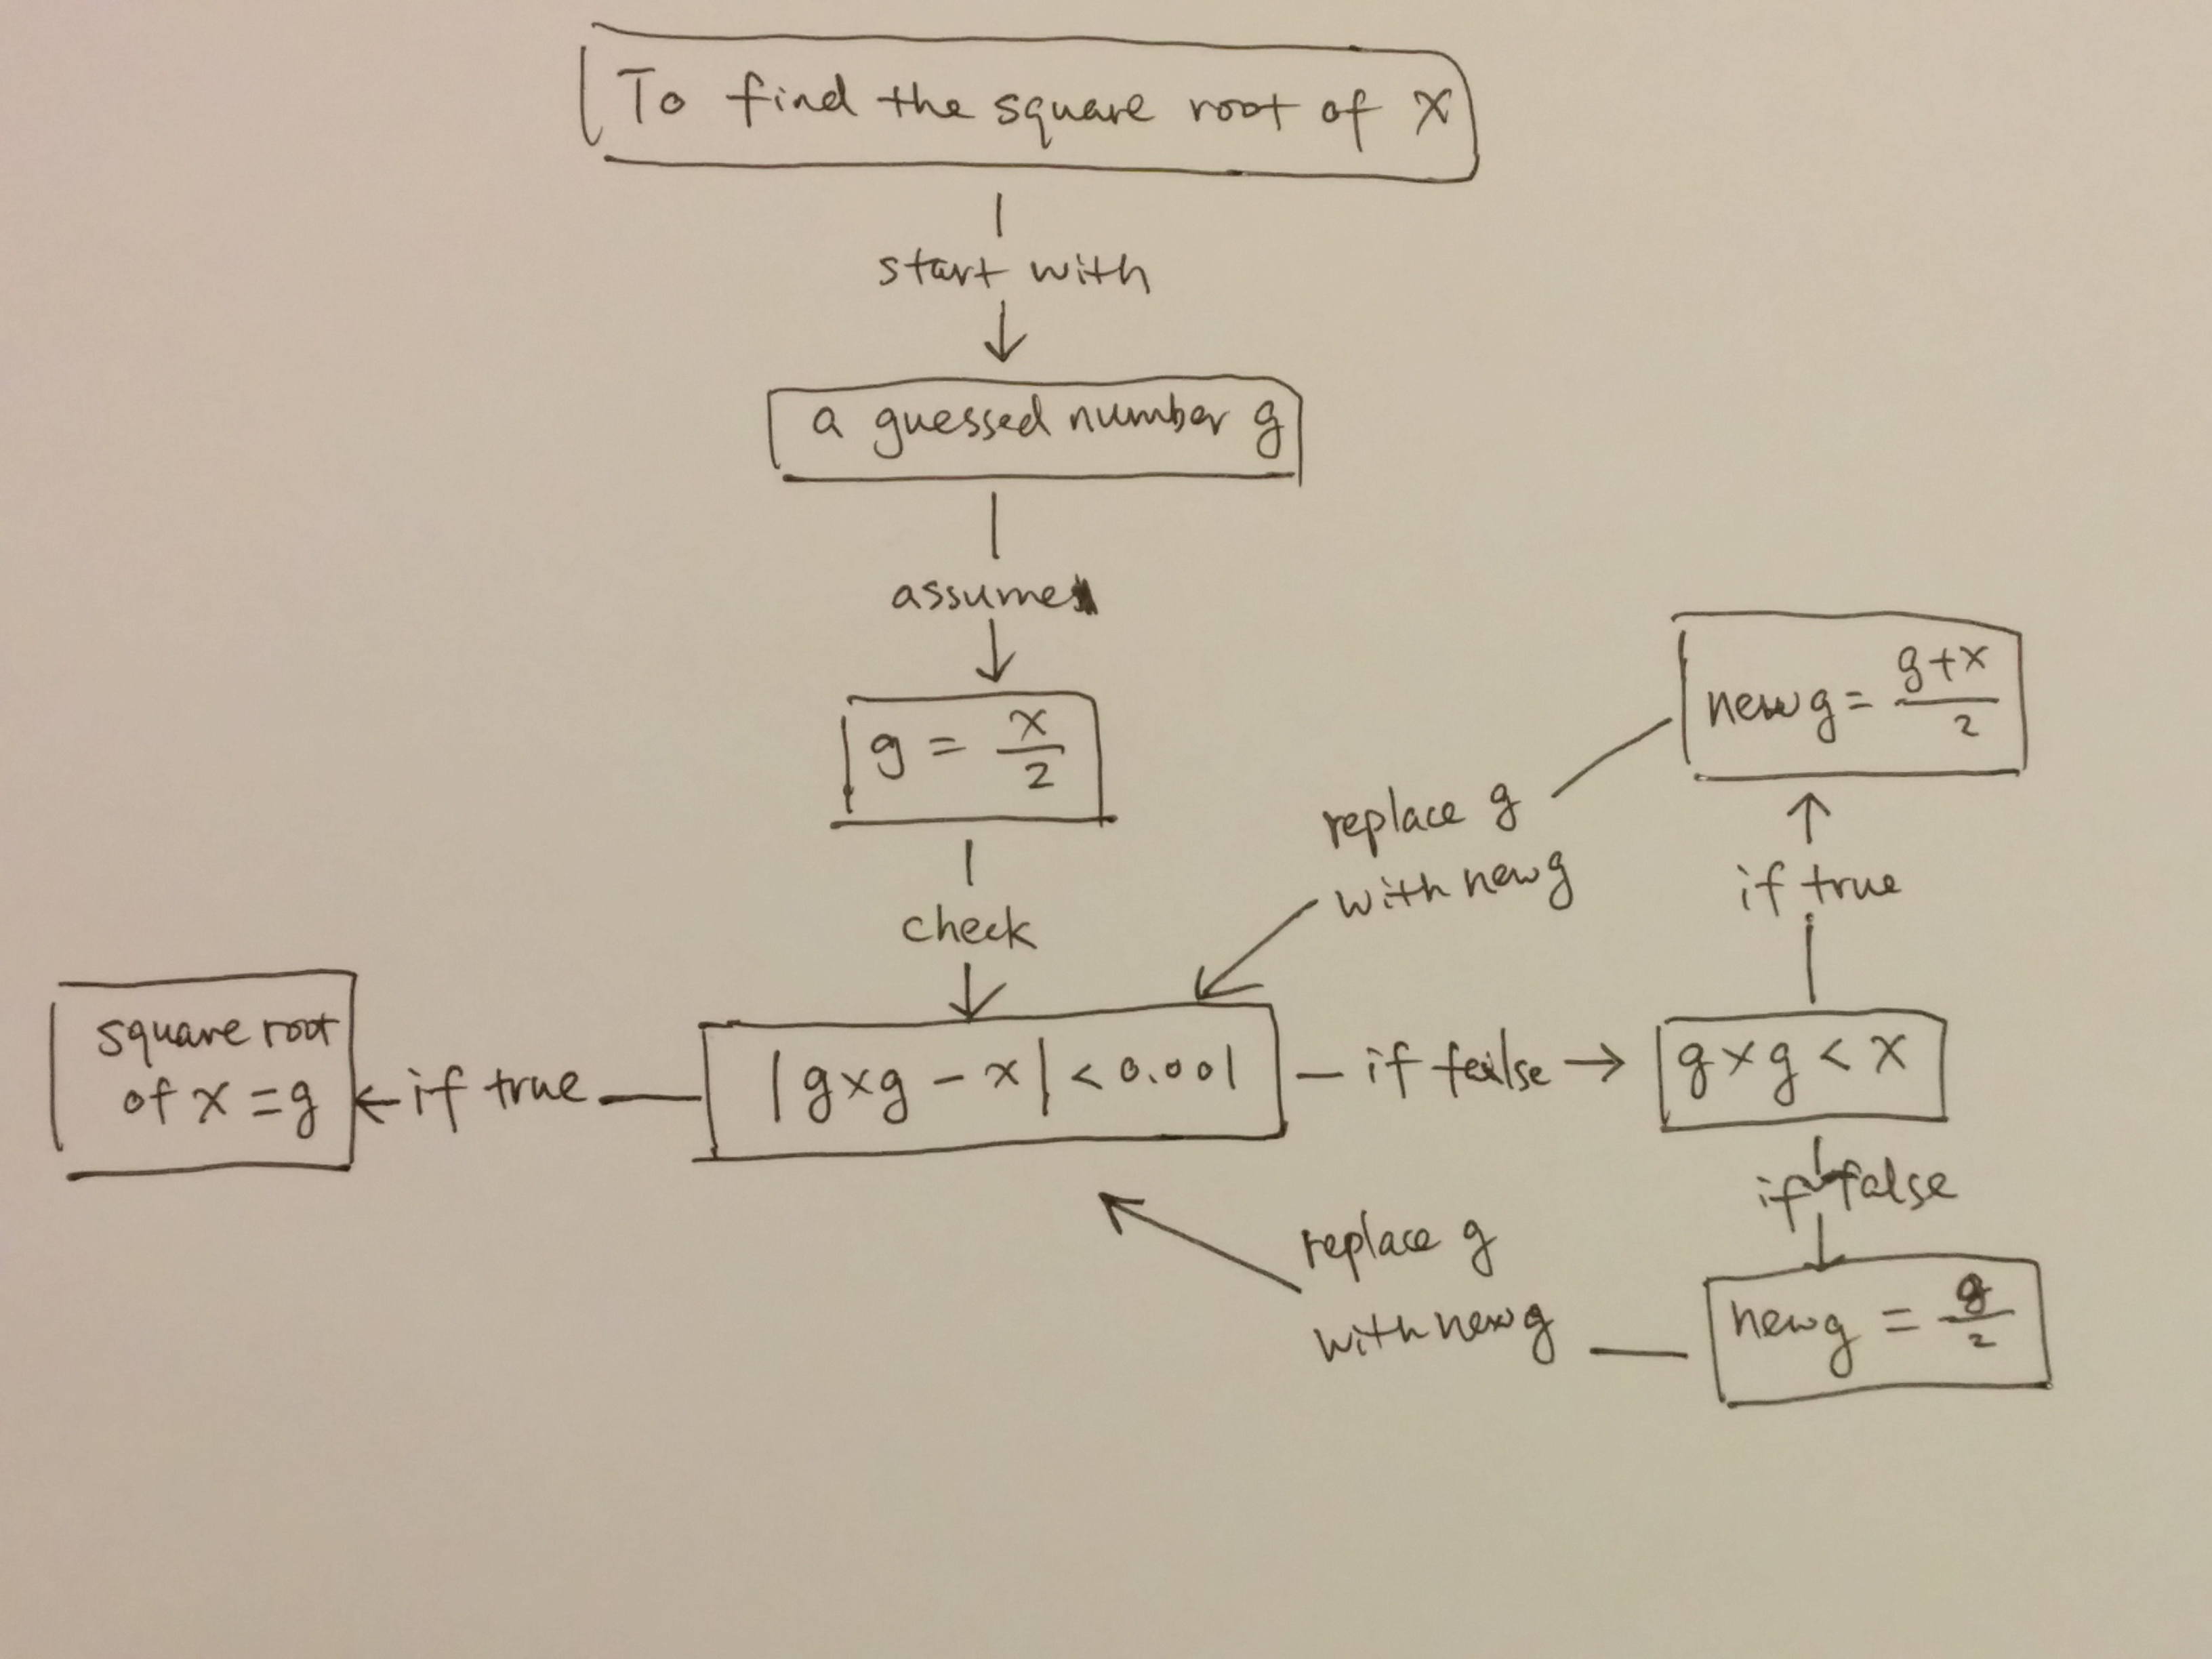 To find the square root of x
start with
a guessed number g
assume
g = x/2
check
|g×g - x| < 0.001
if true
square root
of x = g
if false
g×g < x
if true
new g = g+x/2
replace g
with new g
if false
new g = g/2
replace g
with new g